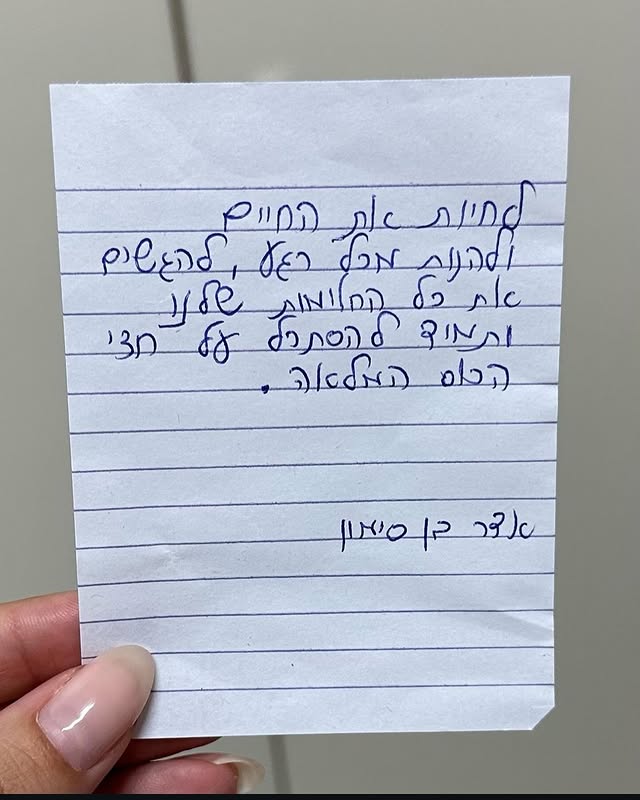 לחיות את החיים
ולהנות מכל רגע, להגשים
את כל החלומות שלנו
ותמיד להסתכל על חצי
הכוס המלאה.
אדר בן סימון